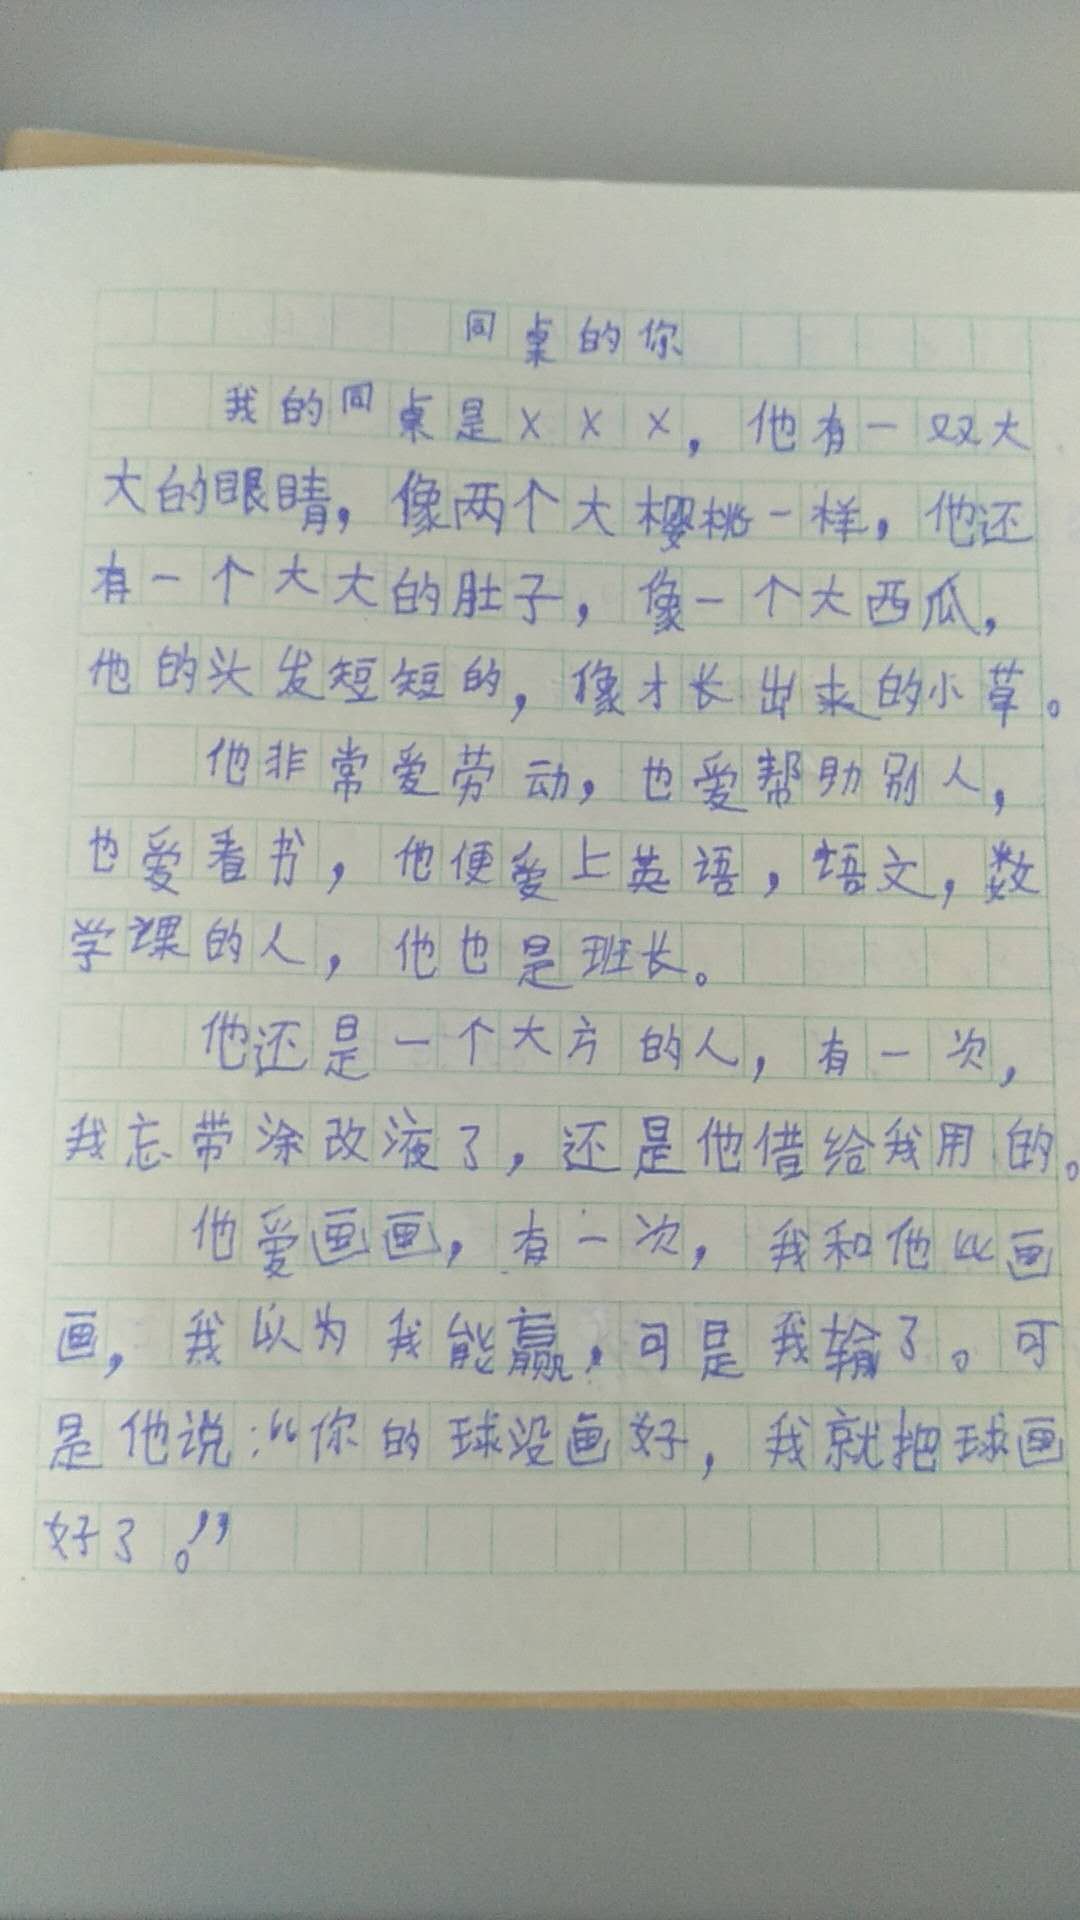 同桌的你
我的同桌是×××，他有一双大
大的眼睛，像两个大樱桃一样，他还
有一个大大的肚子，像一个大西瓜，
他的头发短短的，像才长出来的小草。
他非常爱劳动，也爱帮助别人，
也爱看书，他便爱上英语，语文，数
学课的人，他也是班长。
他还是一个大方的人，有一次，
我忘带涂改液了，还是他借给我用的。
他爱画画，有一次，我和他比画
画，我以为我能赢，可是我输了。可
是他说：“你的球没画好，我就把球画
好了。”